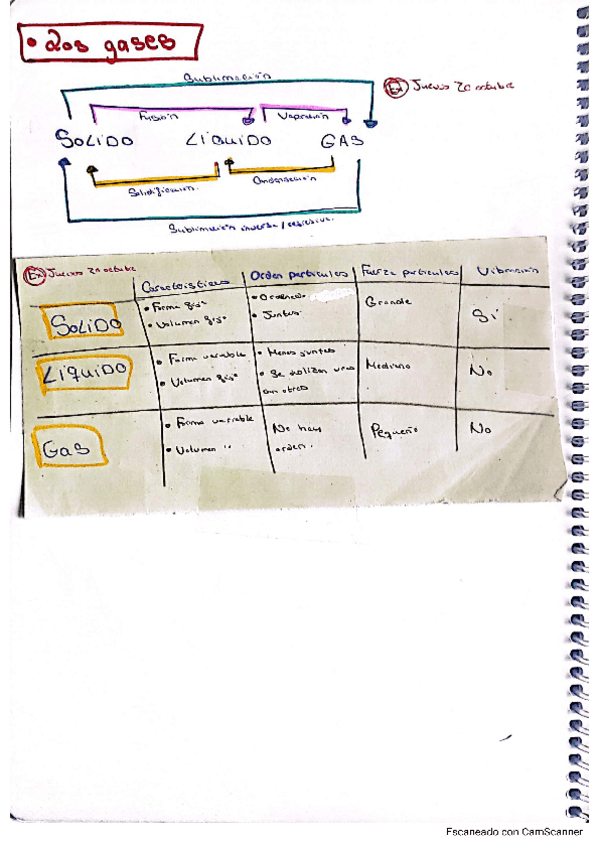 • Los gases
Sublimación
Ex Jueves 20 octubre
Fusión Vaporación
SOLIDO LIQUIDO GAS
Solidificación Condensación
Sublimación inversa / regresiva.
Ex Jueves 20 octubre
Caracteisticas Orden particulas Fuerza particulas Vibración
SOLIDO
• Forma fija
• Volumen fijo
• Ordenado
• Juntas
Grande
Sí
LIQUIDO
• Forma variable
• Volumen fijo
• Menos juntas
• Se deslizan unas
con otras
Mediano
No
Gas
• Forma variable
• Volumen ''
No hay
orden.
Pequeño
No
Escaneado con CamScanner